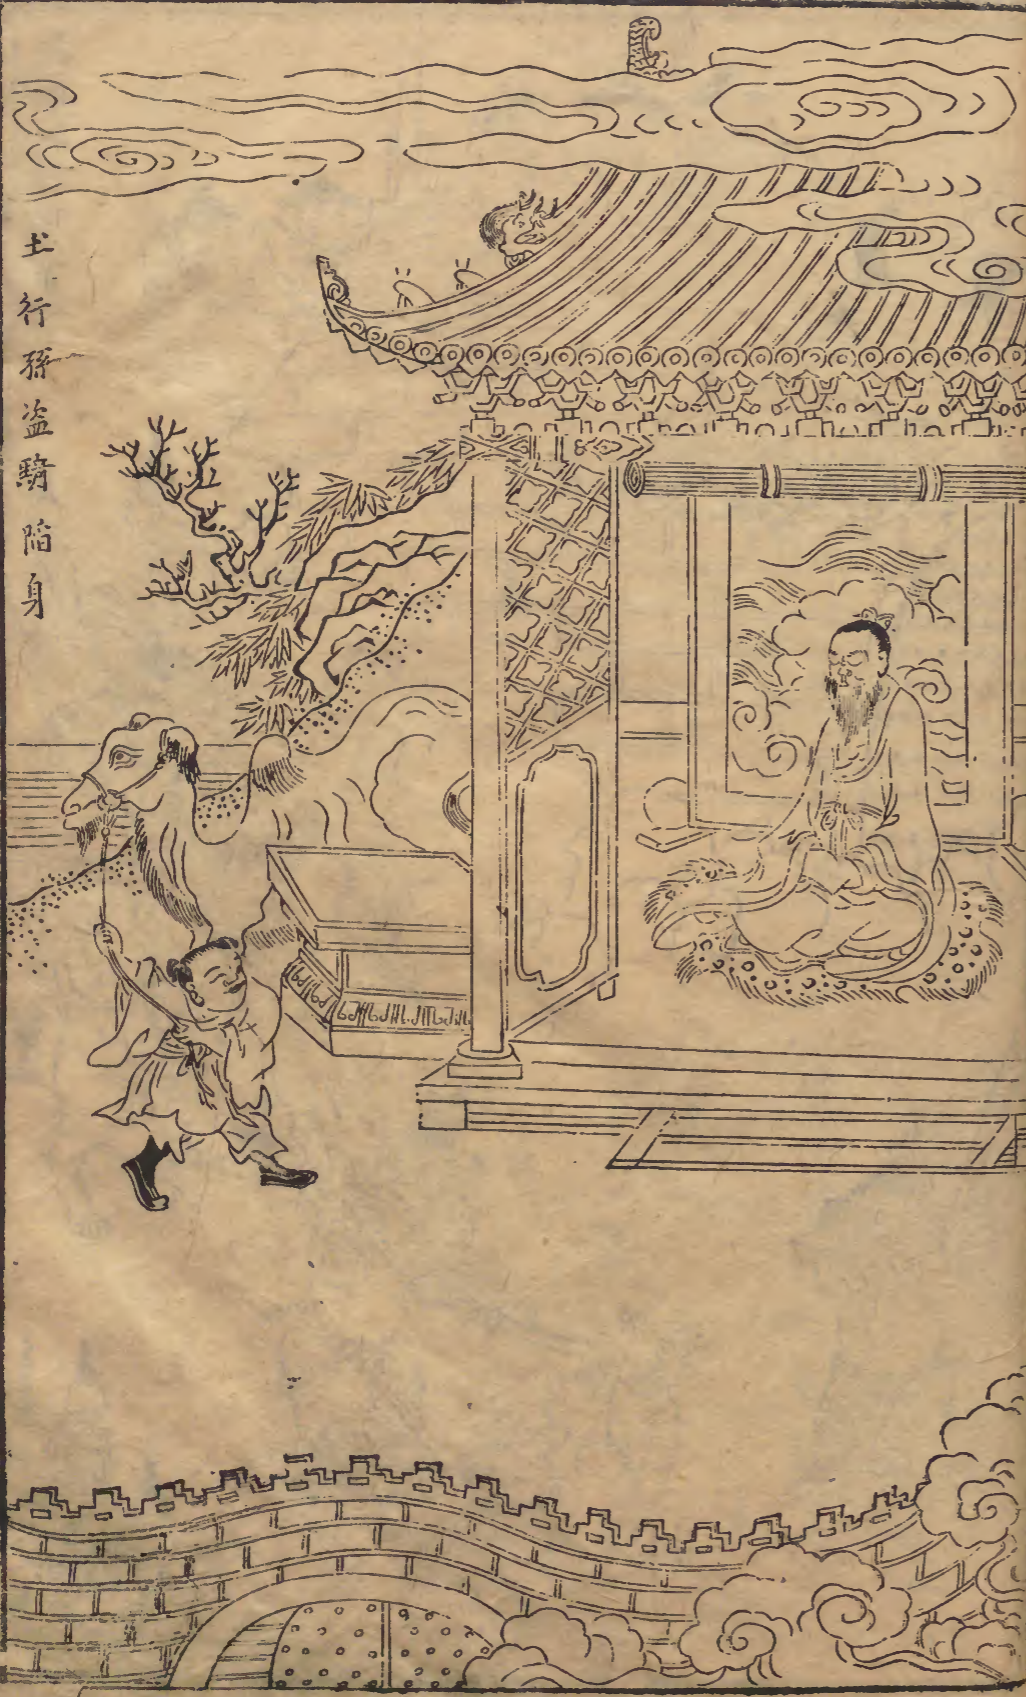 土行孫盗騎陷身